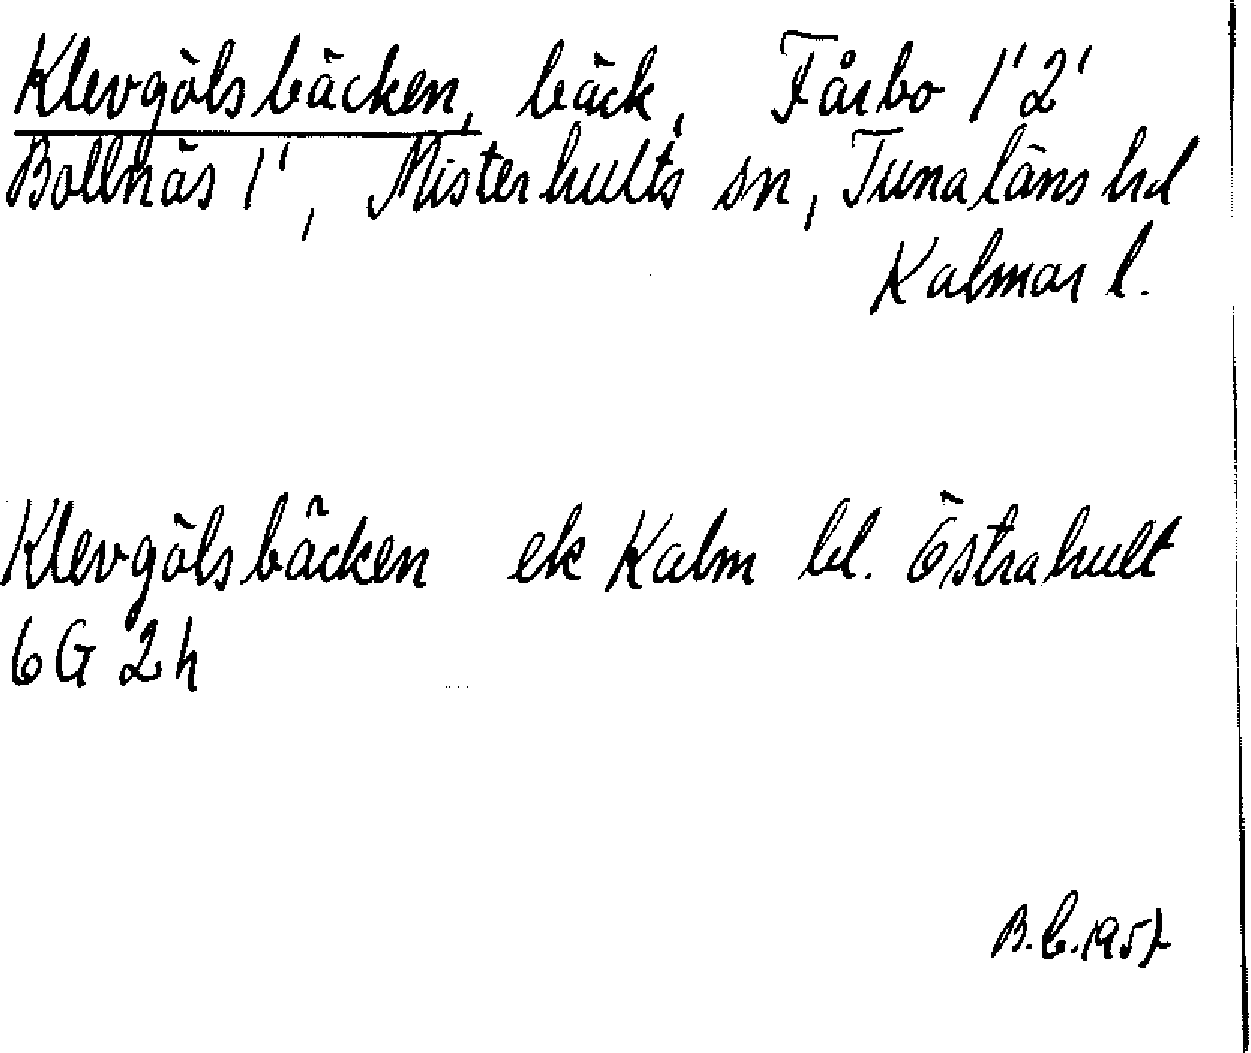 Klevgölsbäcken, bäck, Fårbo 1'2'
Bollnäs 1', Misterhults sn, Tunaläns hd
Kalmar l.
Klevgölsbäcken ek Kalm bl. Östrahult
6G 2h
B.C.1957